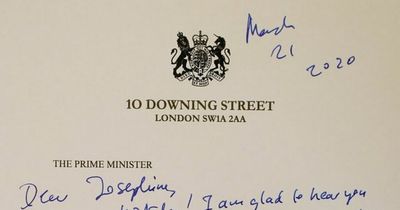 March
21
2020
10 DOWNING STREET
LONDON SW1A 2AA
THE PRIME MINISTER
Dear Josephine,
! I am glad to hear you